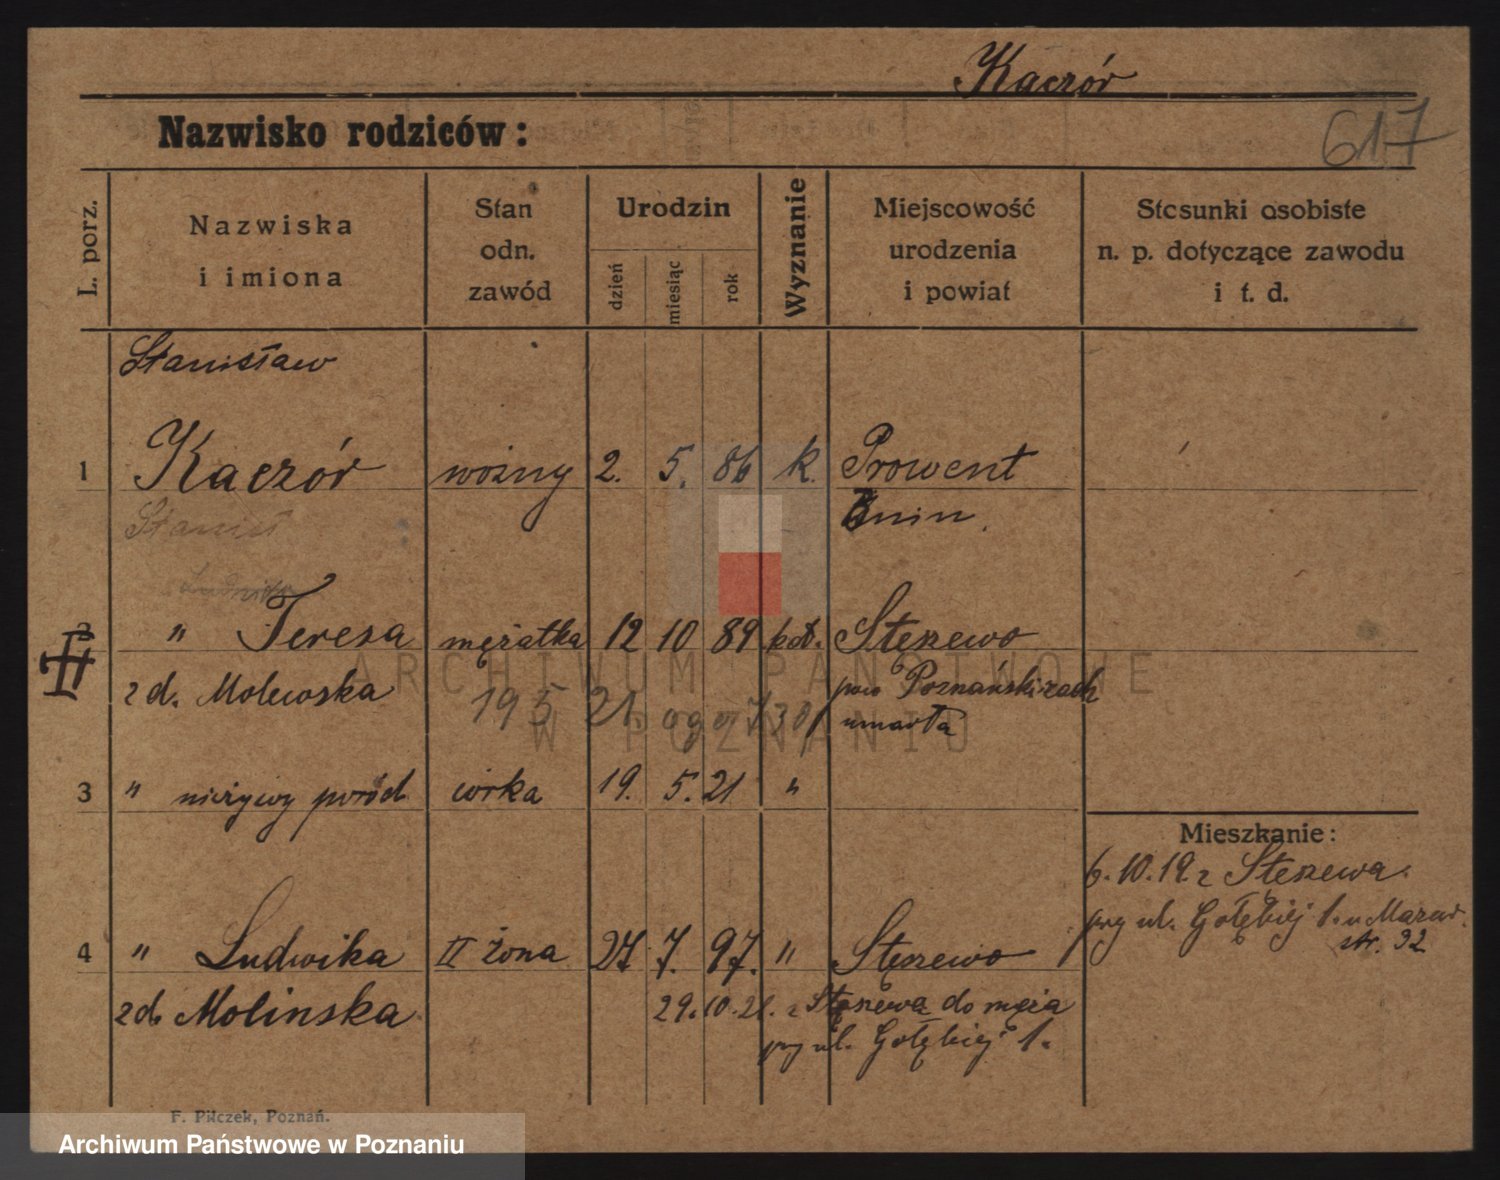 Kaczór
Nazwisko rodziców:
617
L. porz.
Nazwiska
i imiona
Stan
odn.
zawód
Urodzin
dzień
miesiąc
rok
Wyznanie
Miejscowość
urodzenia
i powiat
Stosunki osobiste
n. p. dotyczące zawodu
i t. d.
Stanisław
1 Kaczór woźny 2. 5. 86 k. Prowent
Stanisł Bnin.
Ludwika
2 " Teresa mężatka 12 10 89 kat. Stęszewo
z d. Molewska pow Poznański-zach
195 21 umarła
3 " nieżywy poród córka 19. 5. 21 "
Mieszkanie:
6.10.19. z Stęszewa.
przy ul. Gołębiej 1. u
str. 32
4 " Ludwika II żona 27. 7. 97. " Stęszewo
z d. Molinska 29.10.21. z Stęszewa do męża
przy ul. Gołębiej 1.
F. Pilczek, Poznań.
ARCHIWUM PAŃSTWOWE
W POZNANIU
Archiwum Państwowe w Poznaniu